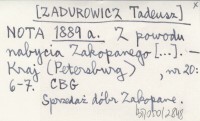 [ZADUROWICZ Tadeusz]
NOTA 1889 a. Z powodu
nabycia Zakopanego [...]. —
Kraj (Petersburg) , nr 20:
6-7. CBG
Sprzedaż dóbr Zakopane.